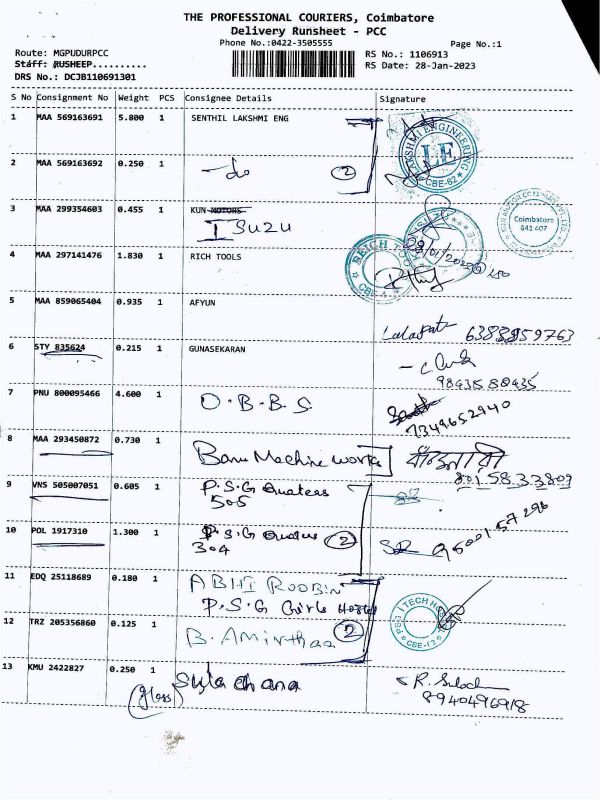 THE PROFESSIONAL COURIERS, Coimbatore
Delivery Runsheet - PCC
Phone No.:0422-3505555
Page No.:1
Route: MGPUDURPCC
RS No.: 1106913
Staff: RUSHEEP..........
RS Date: 28-Jan-2023
DRS No.: DCJB110691301
S No Consignment No Weight PCS Consignee Details Signature
1 MAA 569163691 5.800 1 SENTHIL LAKSHMI ENG
LAKSHMI ENGINEERING
LE
CBE-62
2 MAA 569163692 0.250 1 -do 2
3 MAA 299354603 0.455 1 KUN MOTORS
ISUZU
Coimbatore
641 407
4 MAA 297141476 1.830 1 RICH TOOLS
5 MAA 859065404 0.935 1 AFYUN
6388859763
6 STY 835624 0.215 1 GUNASEKARAN
7 PNU 800095466 4.600 1 O.B.B.S.
7349652940
8 MAA 293450872 0.730 1 Banu Machine works
8015833809
9 VNS 505007051 0.605 1 P.S.G Quaters
505
10 POL 1917310 1.300 1 P.S.G Quaters 2
304
9500157296
11 EDQ 25118689 0.180 1 ABHI ROOBIN
P.S.G Girls Hostel
PSG iTECH HOSTEL
12 TRZ 205356860 0.125 1 B. Amirthaa 2
13 KMU 2422827 0.250 1 Sulachana
R. Suloch
(glass)
8940496918